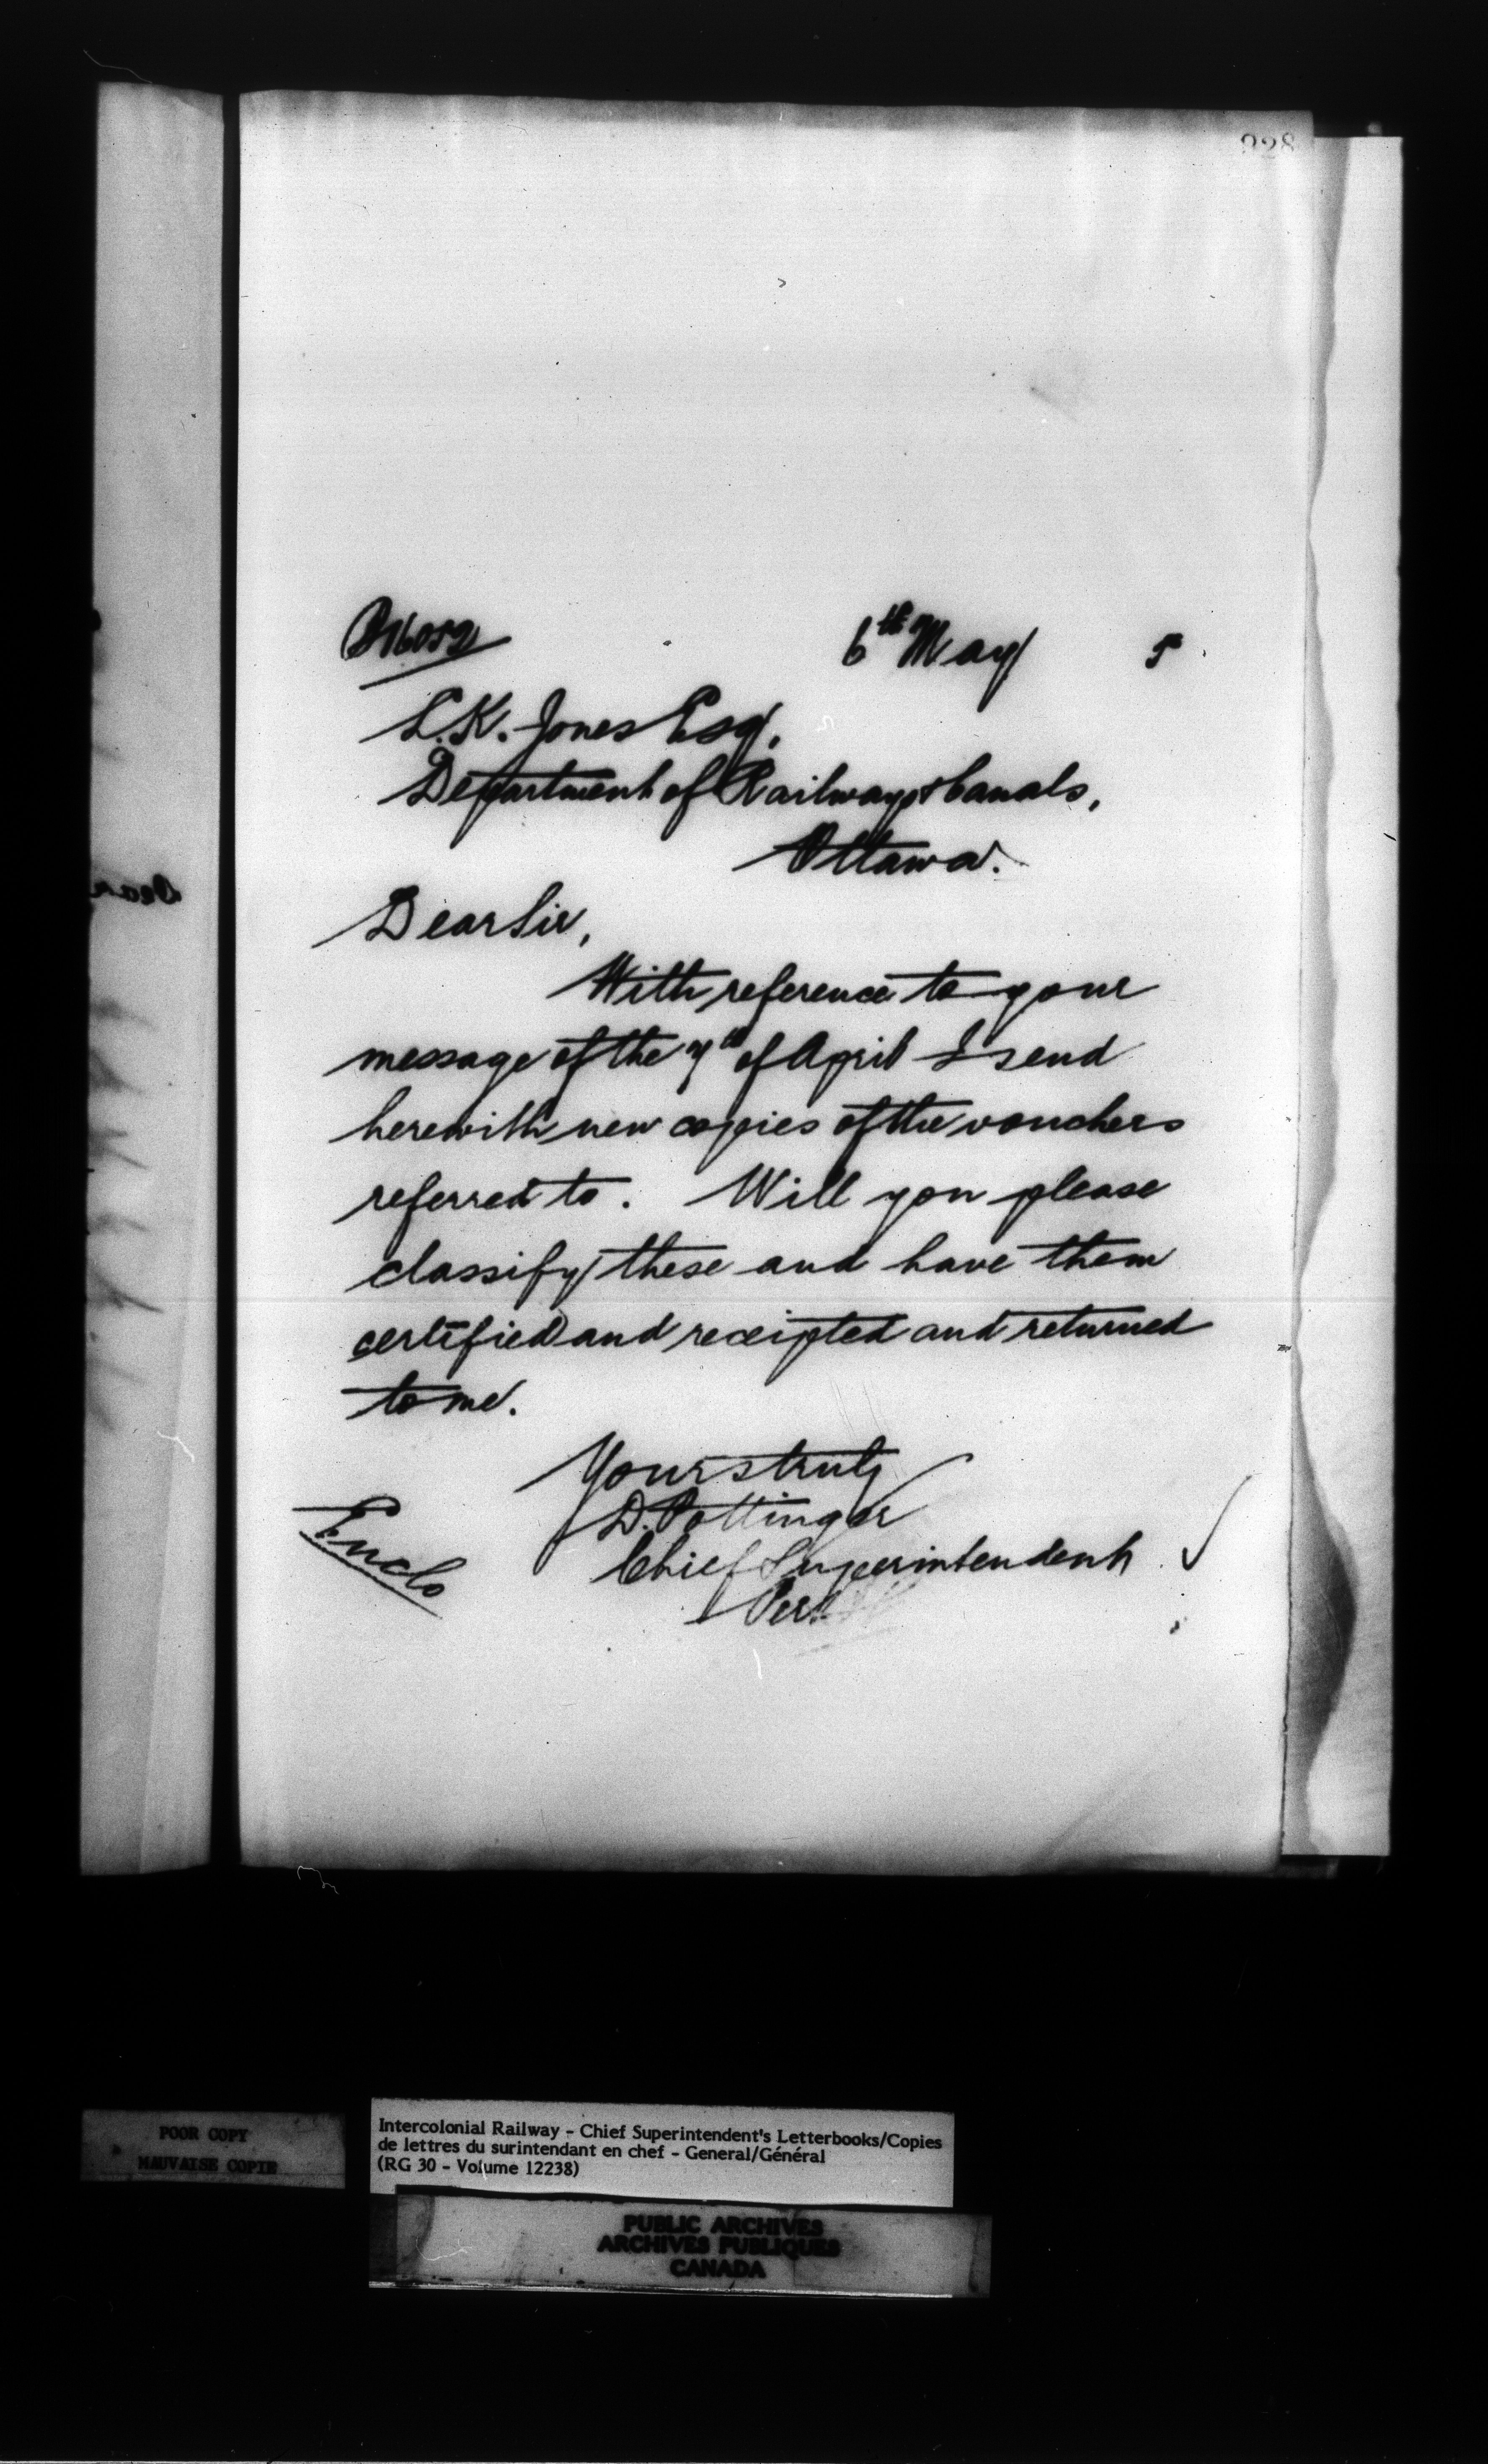 328
6th May 5
L.K. Jones Esq,
Department of Railways & Canals,
Ottawa.
Dear Sir,
With reference to your
message of the 7th of April I send
herewith new copies of the vouchers
referred to. Will you please
classify these and have them
certified and receipted and returned
to me.
Yours truly
D. Pottinger
Chief Superintendent
Per.
Enclo
Dear
POOR COPY
MAUVAISE COPIE
Intercolonial Railway - Chief Superintendent's Letterbooks/Copies
de lettres du surintendant en chef - General/Général
(RG 30 - Volume 12238)
PUBLIC ARCHIVES
ARCHIVES PUBLIQUES
CANADA